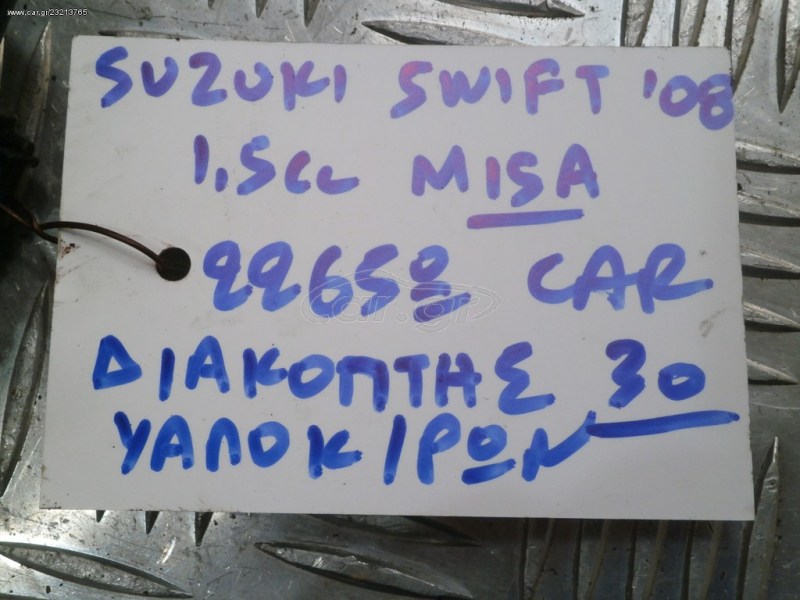 www.car.gr/23213765
SUZUKI SWIFT '08
1,5cc M15A
22658 CAR
car.gr
ΔΙΑΚΟΠΤΗΣ 30
ΥΑΛΟΚ/ΡΩΝ